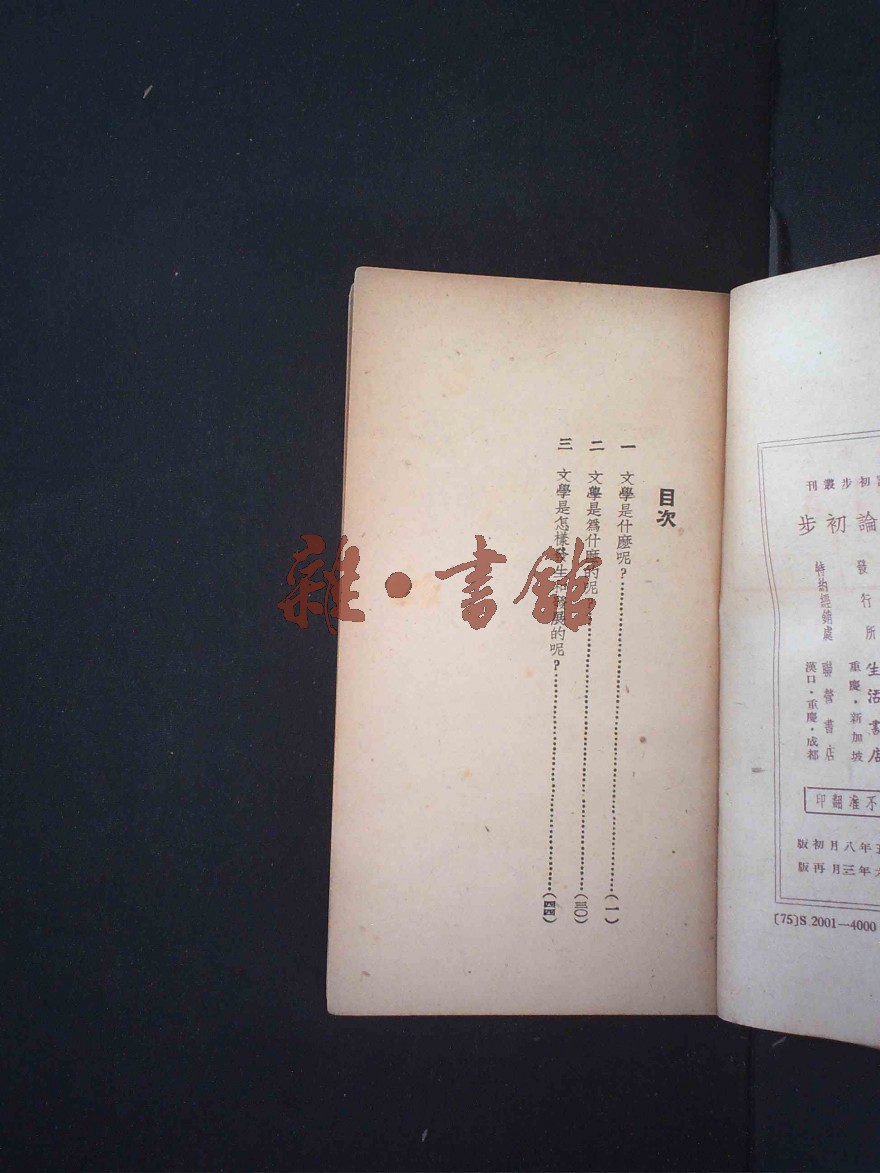 目次
一　文學是什麽呢？……（一）
二　文學是爲什麽的呢？……（三〇）
三　文學是怎樣發生和發展的呢？……（四四）
初步叢刊
論初步
發行所
生活書店
重慶・新加坡
特約經銷處
聯營書店
漢口・重慶・成都
不准翻印
年八月初版
年三月再版
〔75〕S 2001—4000
雜・書館